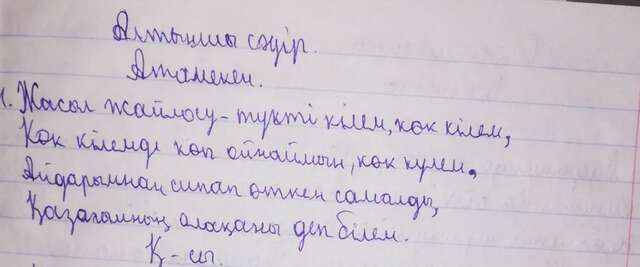 Алтыншы сәуір.
Атамекен.
1. Жасыл жайлау – түкті кілем, көк кілем,
Көк кілемде көп ойнаймын, көк күлем,
Айдарымнан сипап өткен самалды,
Қазағымның алақаны деп білем.
Қ-сы.